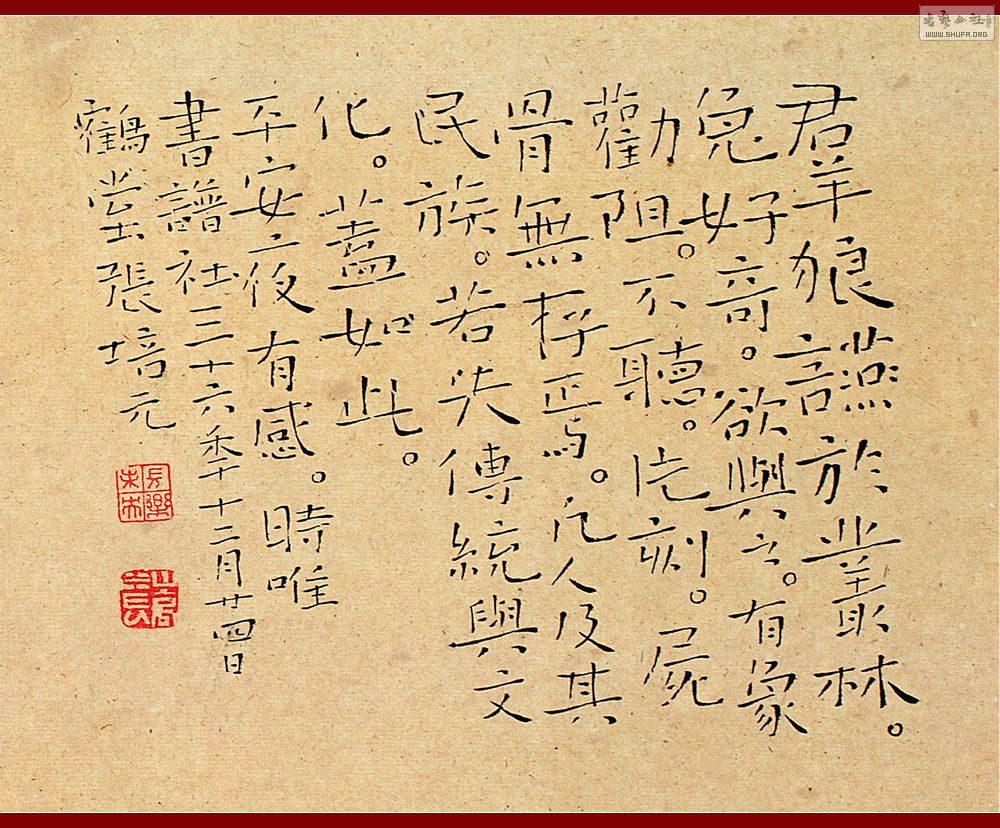 羣狼讌於叢林。
兔好奇。欲與之。有象
勸阻。不聽。片刻。屍
骨無存焉。凡人及其
民族。若失傳統與文
化。蓋如此。
平安夜有感。時唯
書譜社三十六年十二月廿四日
鶴堂張培元
長樂未央
書藝公社
WWW.SHUFA.ORG